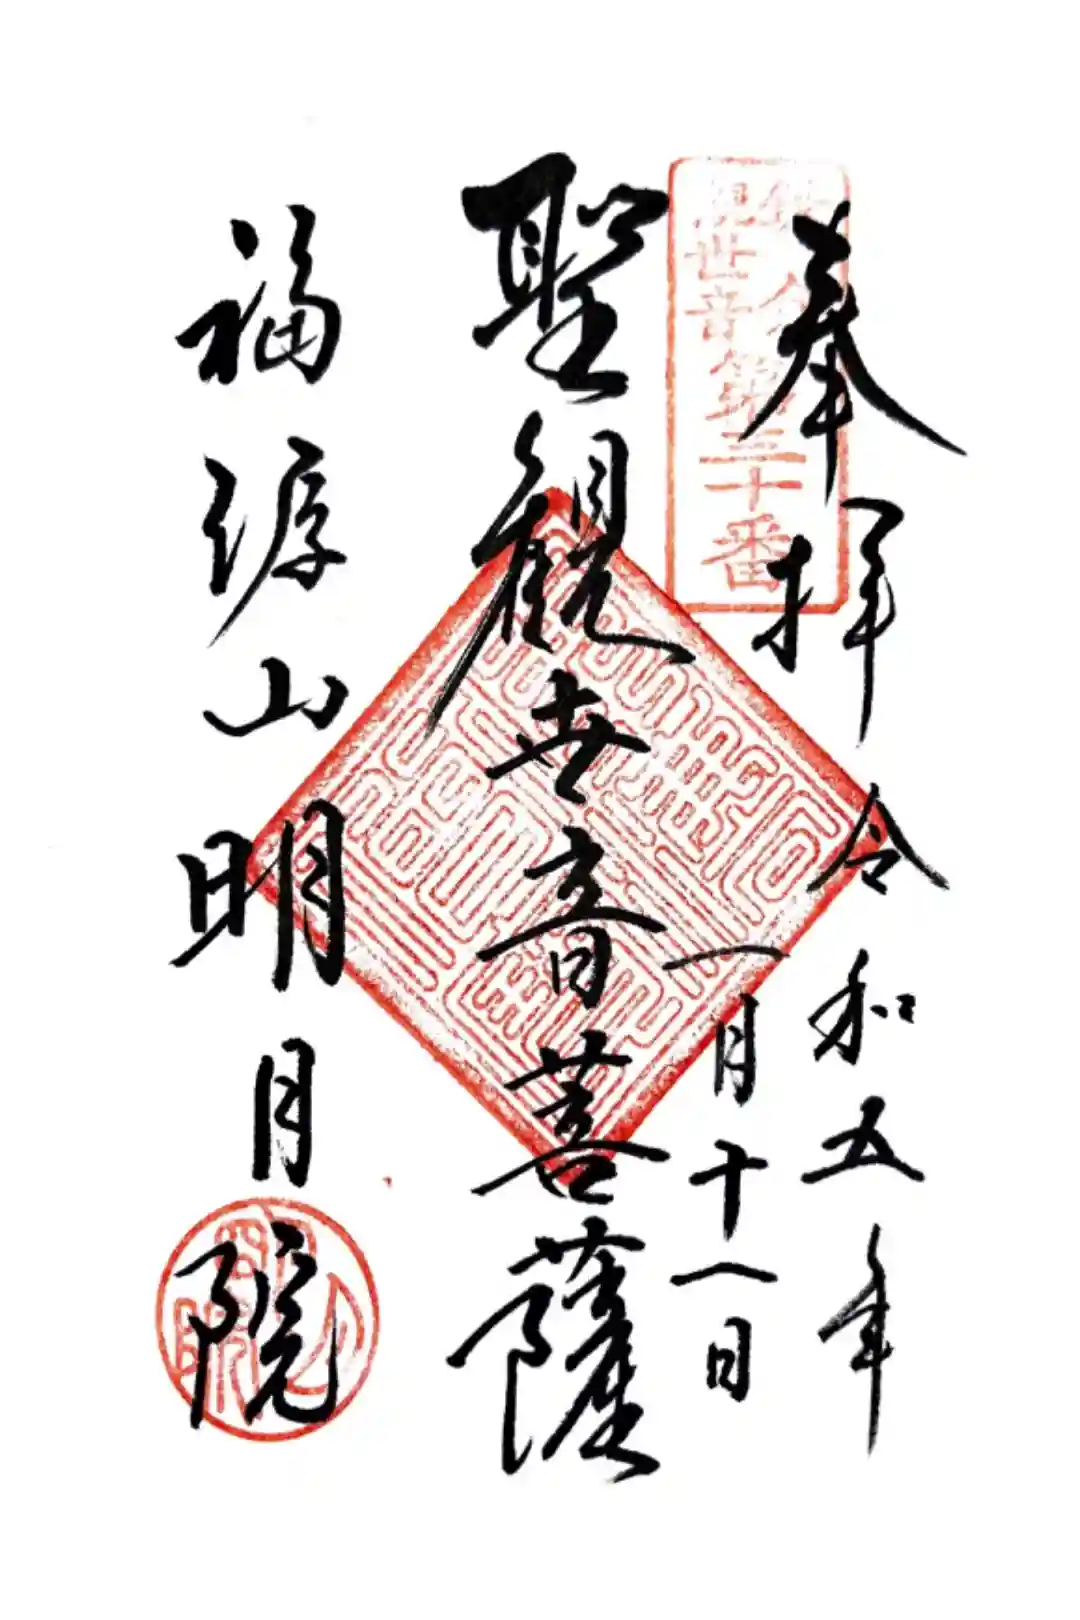 奉拝
令和五年
一月十一日
鎌倉
観世音
第三十番
聖観世音菩薩
福源山
明月院